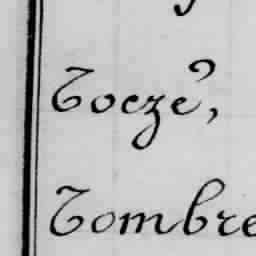 Tocze,
Tombre